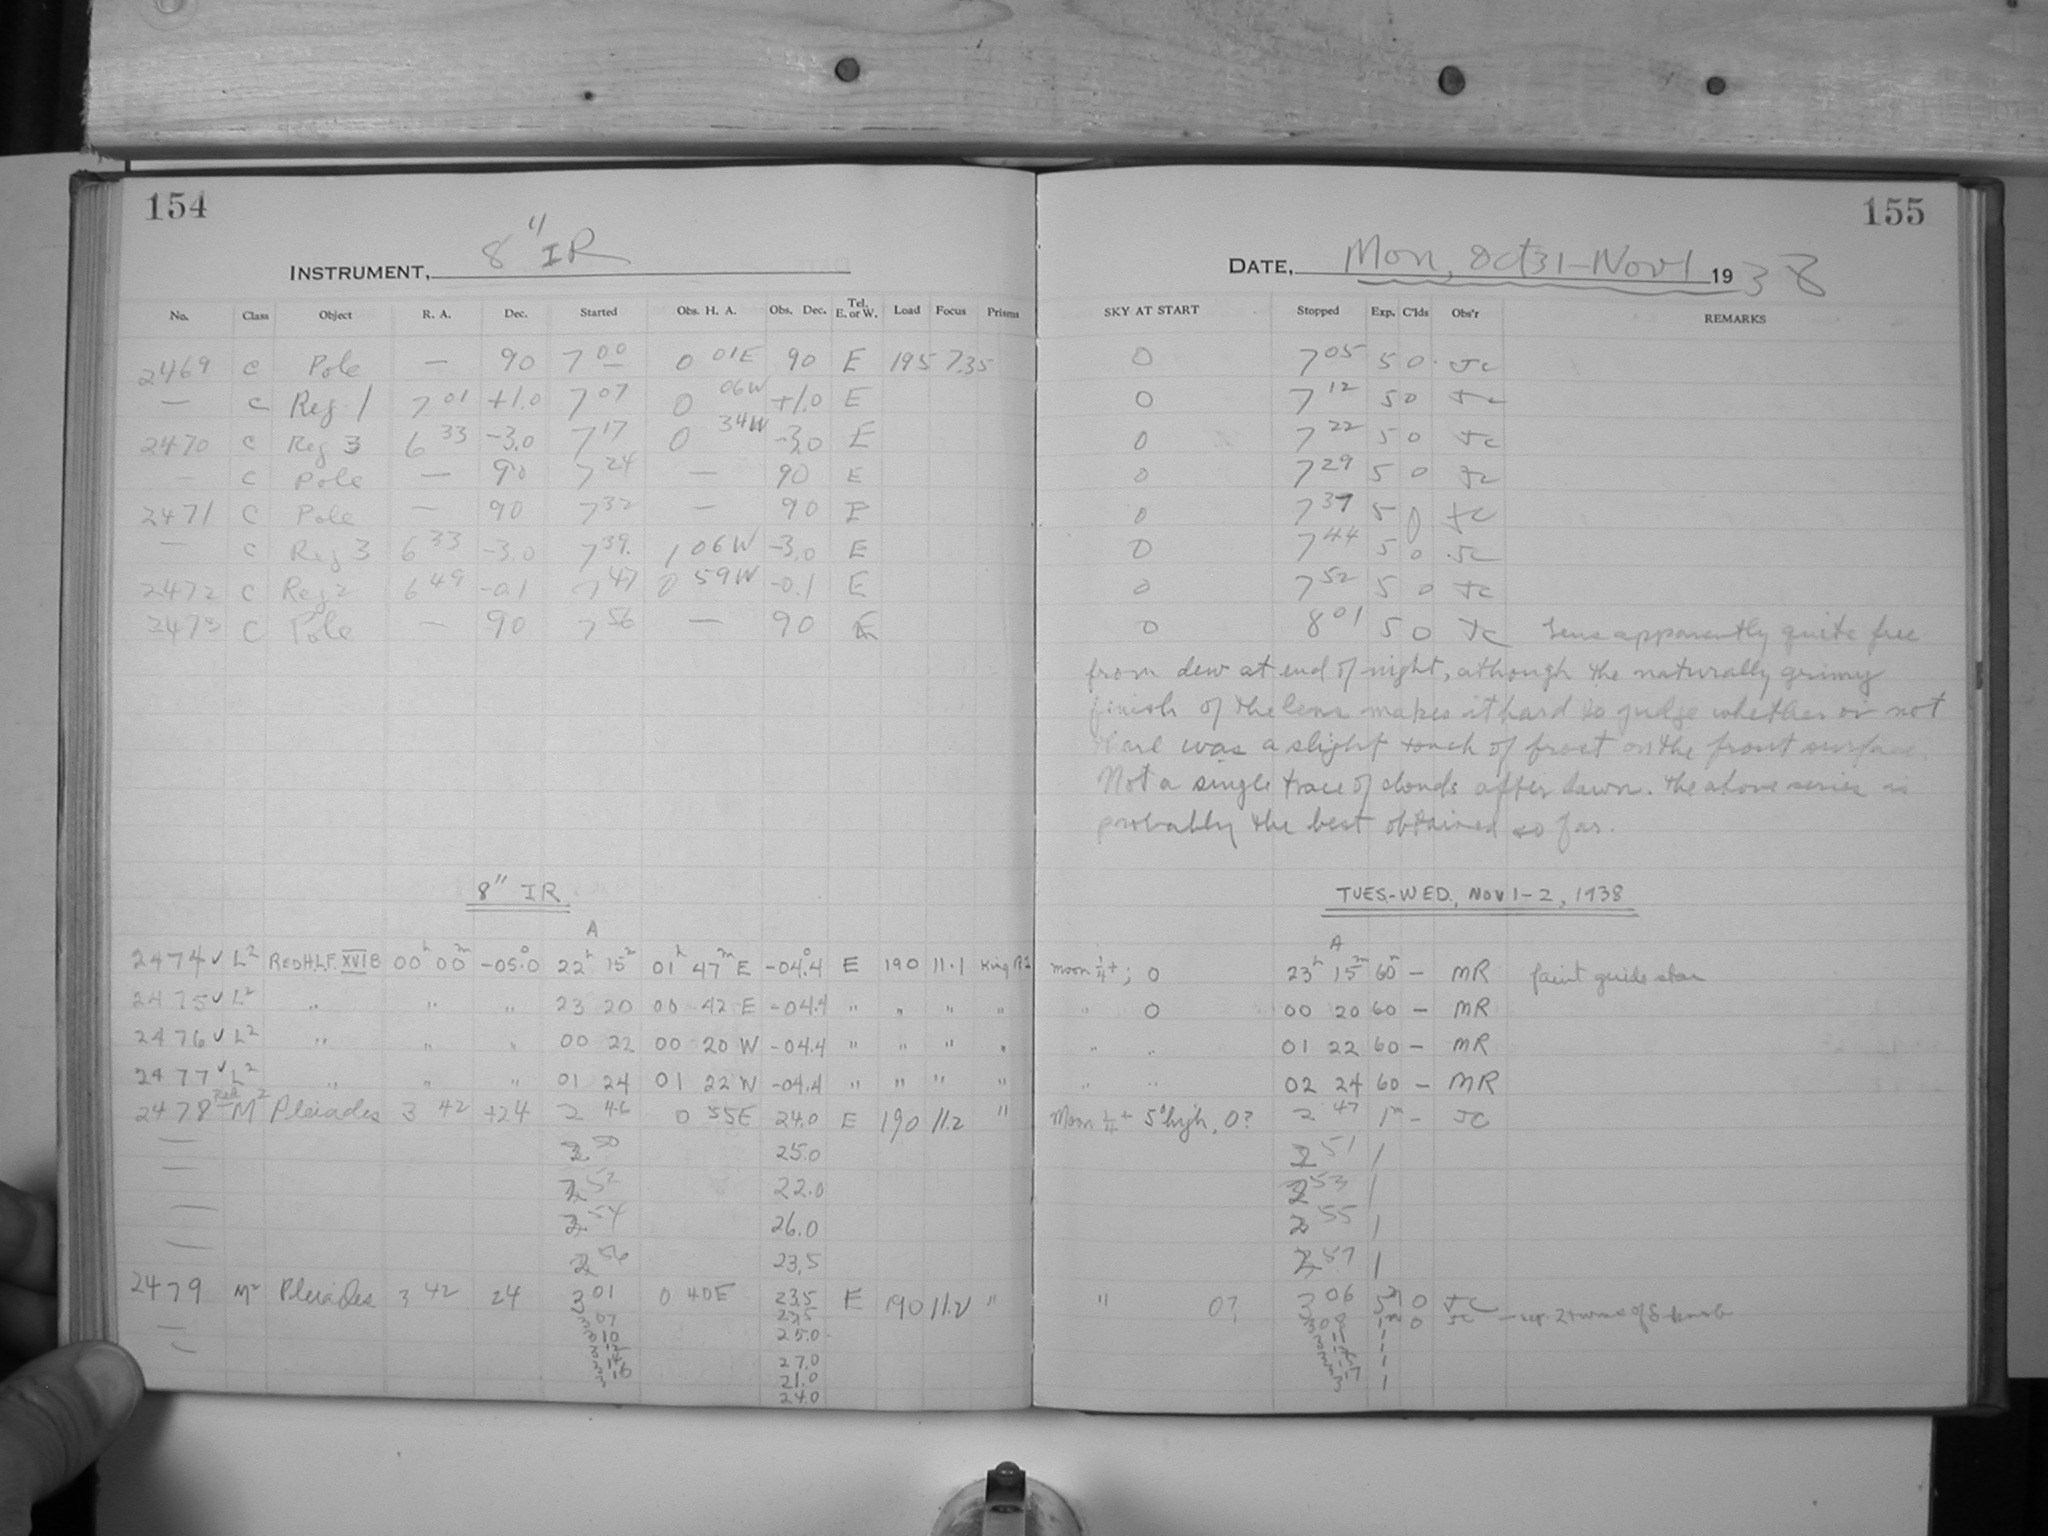 154
155
INSTRUMENT, 8" IR
DATE, Mon, Oct 31-Nov 1 1938
No. Class Object R. A. Dec. Started Obs. H. A. Obs. Dec. Tel. E. or W. Load Focus Prisms SKY AT START Stopped Exp. C'lds Obs'r REMARKS
2469 C Pole — 90 7 00 0 01E 90 E 195 7.35 0 7 05 5 0 JC
— C Reg 1 7 01 +1.0 7 07 0 06W +1.0 E 0 7 12 5 0 JC
2470 C Reg 3 6 33 -3.0 7 17 0 34W -3.0 E 0 7 22 5 0 JC
— C Pole — 90 7 24 — 90 E 0 7 29 5 0 JC
2471 C Pole — 90 7 32 — 90 E 0 7 37 5 0 JC
— C Reg 3 6 33 -3.0 7 39 1 06W -3.0 E 0 7 44 5 0 JC
2472 C Reg 2 6 49 -0.1 7 47 0 59W -0.1 E 0 7 52 5 0 JC
2473 C Pole — 90 7 56 — 90 E 0 8 01 5 0 JC Lens apparently quite free
from dew at end of night, athough the naturally grimy
finish of the lens makes it hard to judge whether or not
there was a slight touch of frost on the front surface.
Not a single trace of clouds after dawn. The above series is
probably the best obtained so far.
8" IR
TUES-WED., NOV 1-2, 1938
A A
2474 ✓ L² RED H.L.F. XVI B 00h 00m -05.0° 22h 15m 01h 47m E -04.4° E 190 11.1 King moon ¼+; 0 23h 15m 60m — MR faint guide star
2475 ✓ L² " " " 23 20 00 42 E -04.4 " " " " " 0 00 20 60 — MR
2476 ✓ L² " " " 00 22 00 20 W -04.4 " " " " " " 01 22 60 — MR
2477 ✓ L² " " " 01 24 01 22 W -04.4 " " " " " " 02 24 60 — MR
2478 Red M² Pleiades 3 42 +24 2 46 0 55E 24.0 E 190 11.2 " Moon ¼+ 5° high, 0? 2 47 1m — JC
— 2 50 25.0 2 51 1
— 2 52 22.0 2 53 1
— 2 54 26.0 2 55 1
— 2 56 23.5 2 57 1
2479 M² Pleiades 3 42 24 3 01 0 40E 23.5 E 190 11.2 " " 0? 3 06 5m 0 JC
— 3 07 23.5 0 JC — sep. 2 turns of S knob
— 3 10 25.0 1
27.0 1
21.0 1
24.0 1